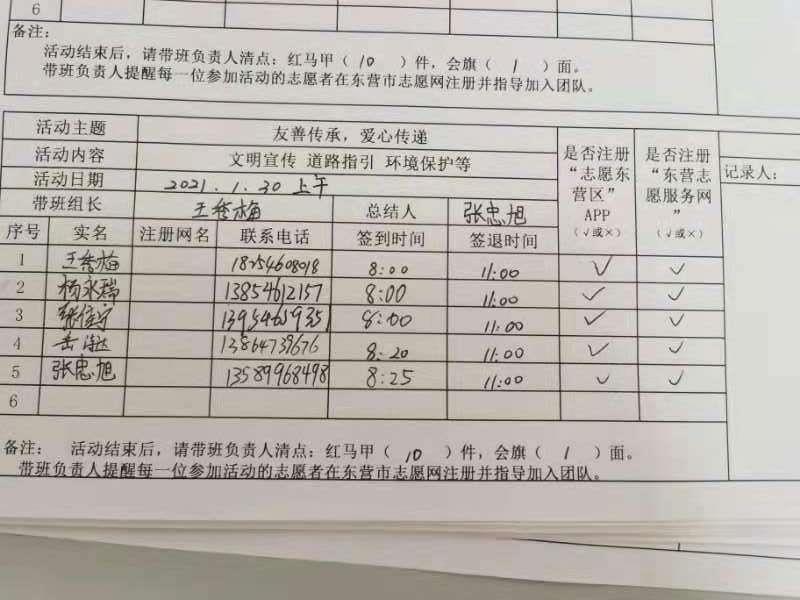 6
备注：
活动结束后，请带班负责人清点：红马甲（ 10 ）件，会旗（ 1 ）面。
带班负责人提醒每一位参加活动的志愿者在东营市志愿网注册并指导加入团队。
活动主题 友善传承，爱心传递 是否注册“志愿东营区”APP（√或×） 是否注册“东营志愿服务网”（√或×） 记录人：
活动内容 文明宣传 道路指引 环境保护等
活动日期 2021.1.30 上午
带班组长 王秀梅 总结人 张忠旭
序号 实名 注册网名 联系电话 签到时间 签退时间
1 王秀梅 18254608018 8:00 11:00 √ √
2 杨永瑞 13854612157 8:00 11:00 √ √
3 张佳宁 13954659351 8:00 11:00 √ √
4 岳 13864739676 8:20 11:00 √ √
5 张忠旭 13589968498 8:25 11:00 √ √
6
备注： 活动结束后，请带班负责人清点：红马甲（ 10 ）件，会旗（ 1 ）面。
带班负责人提醒每一位参加活动的志愿者在东营市志愿网注册并指导加入团队。